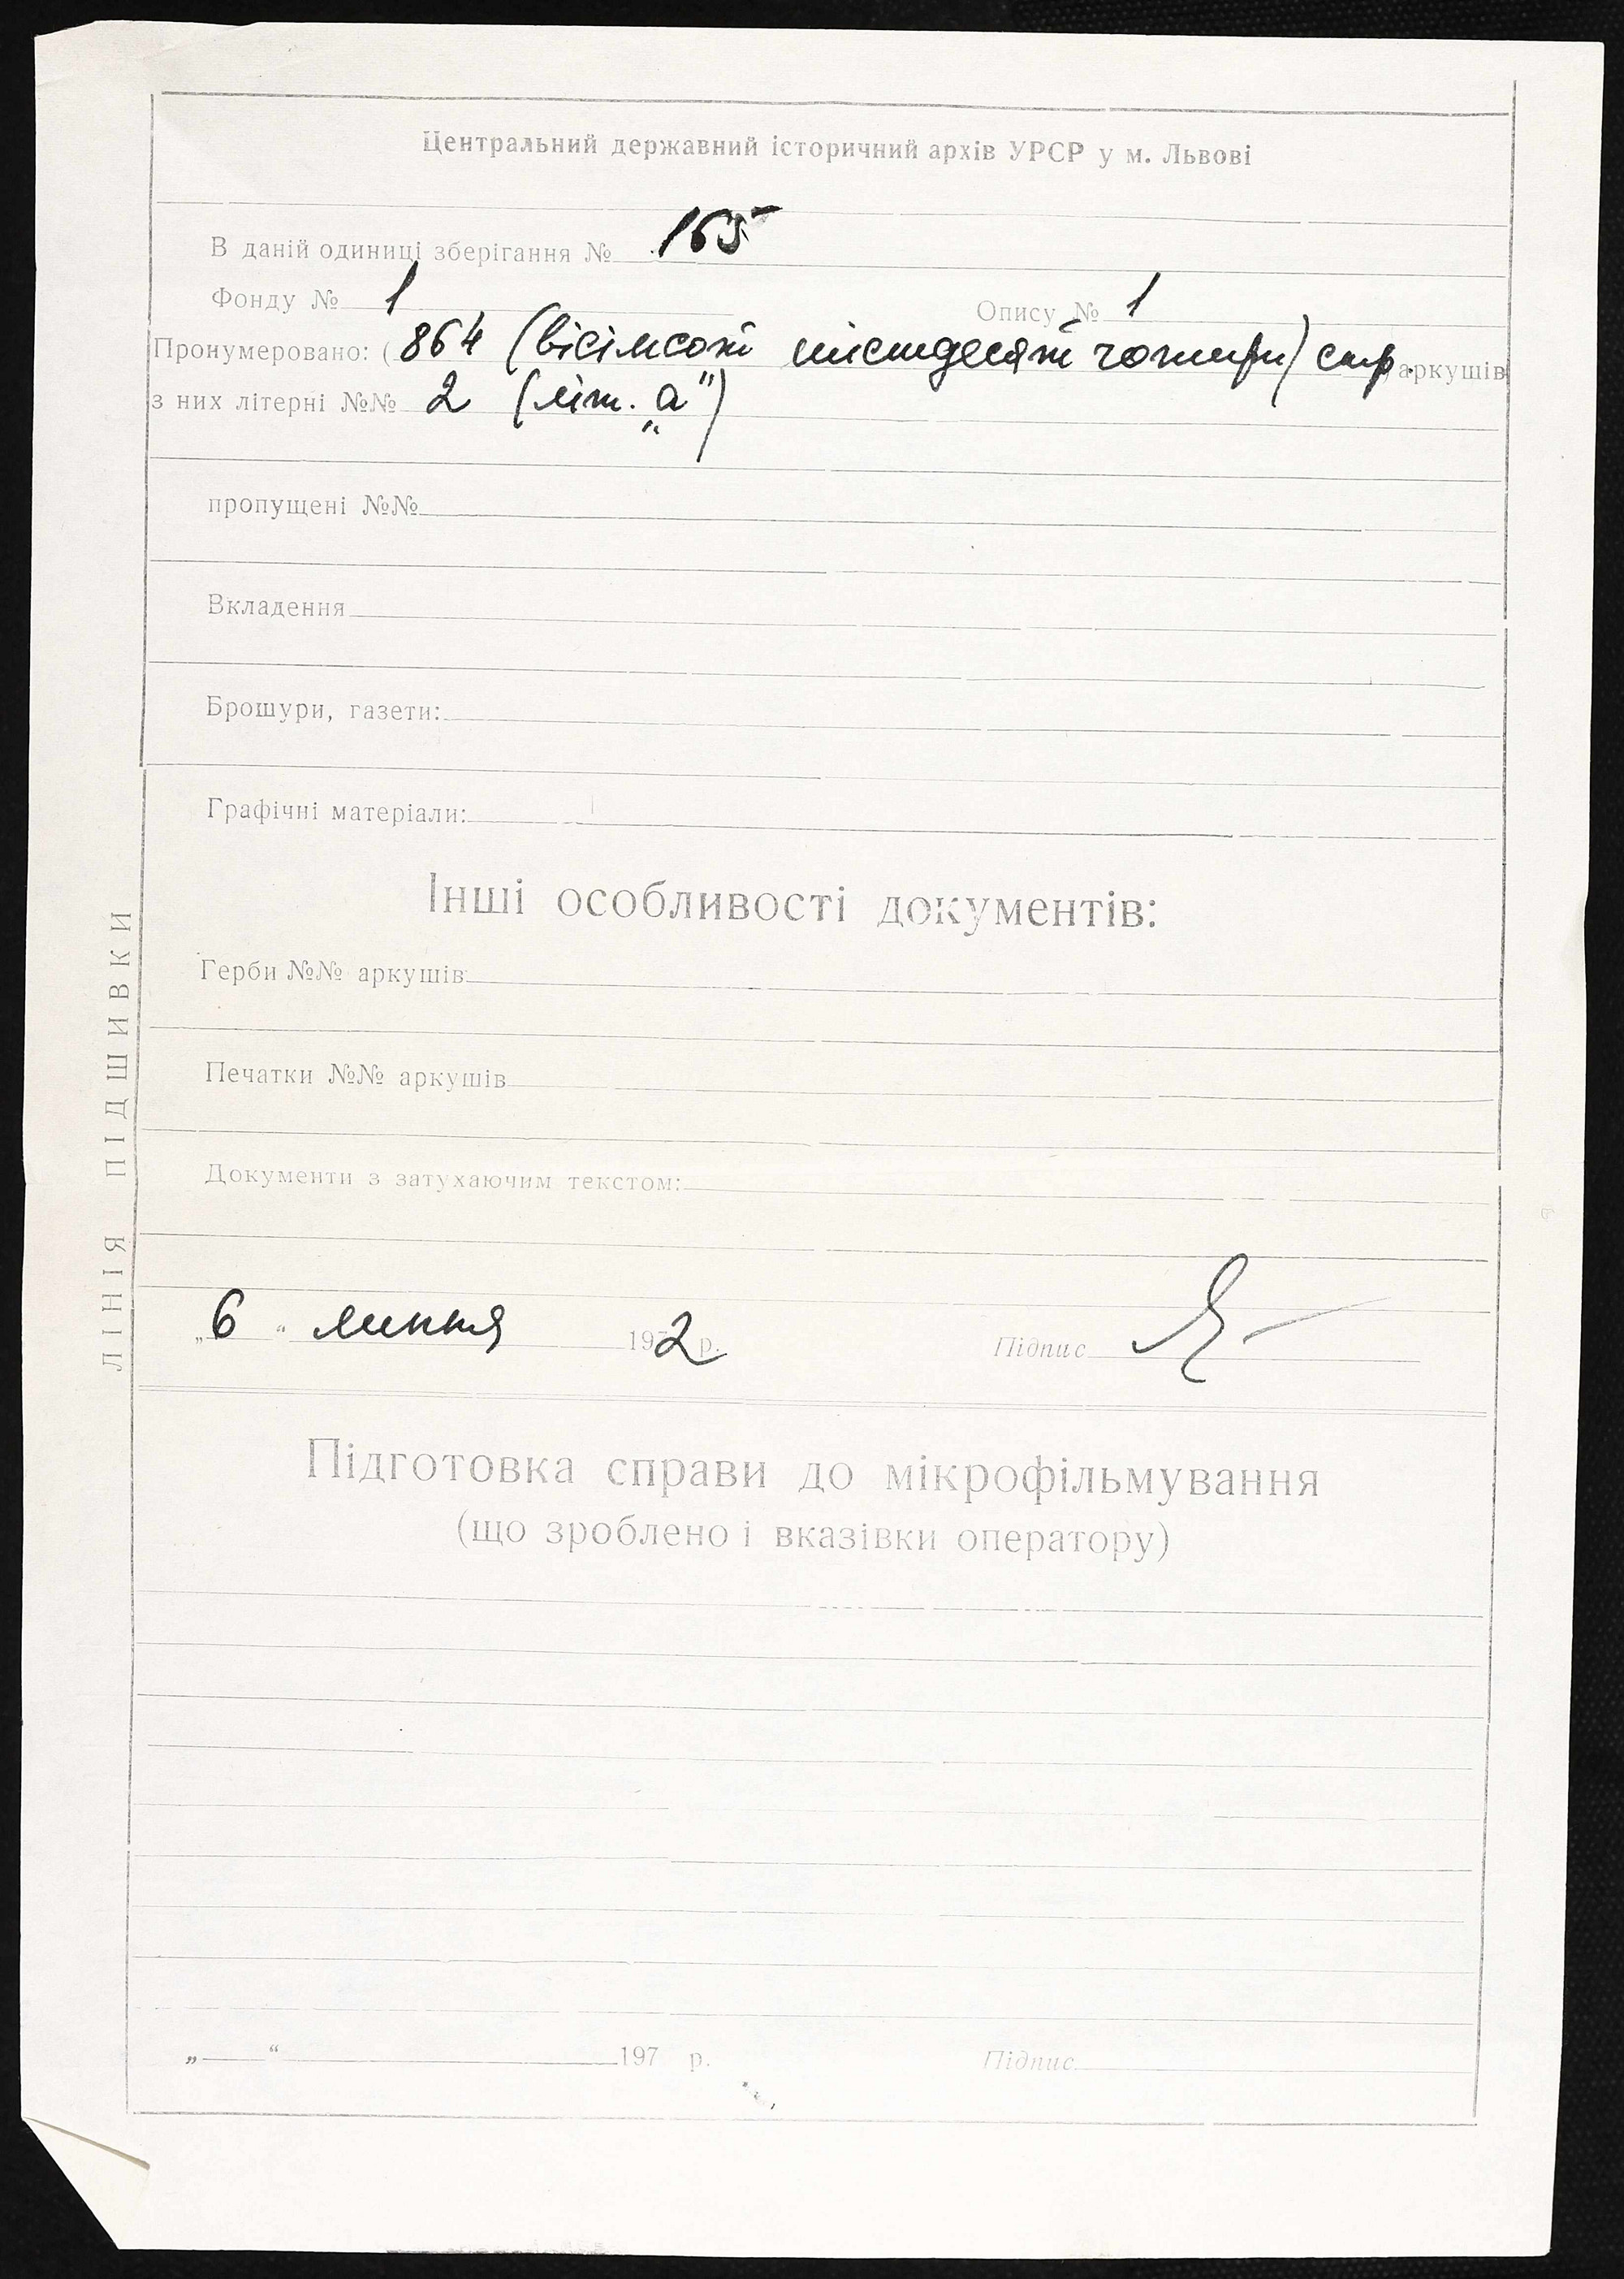 Центральний державний історичний архів УРСР у м. Львові
В даній одиниці зберігання № 165
Фонду № 1 Опису № 1
Пронумеровано: ( 864 (вісімсот шістдесят чотири) стр. аркушів
з них літерні №№ 2 (літ. „а")
пропущені №№
Вкладення
Брошури, газети:
Графічні матеріали:
Інші особливості документів:
Герби №№ аркушів
Печатки №№ аркушів
Документи з затухаючим текстом:
„6" липня 1972 р. Підпис
Підготовка справи до мікрофільмування
(що зроблено і вказівки оператору)
„ " 197 р. Підпис
ЛІНІЯ ПІДШИВКИ